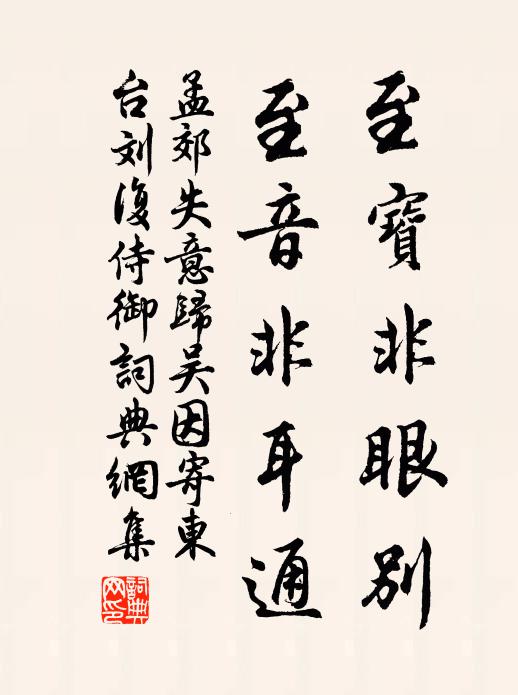 至寶非眼別
至音非耳通
孟郊失意歸吳因寄東
台刘復侍御詞典網集
詞典
网印